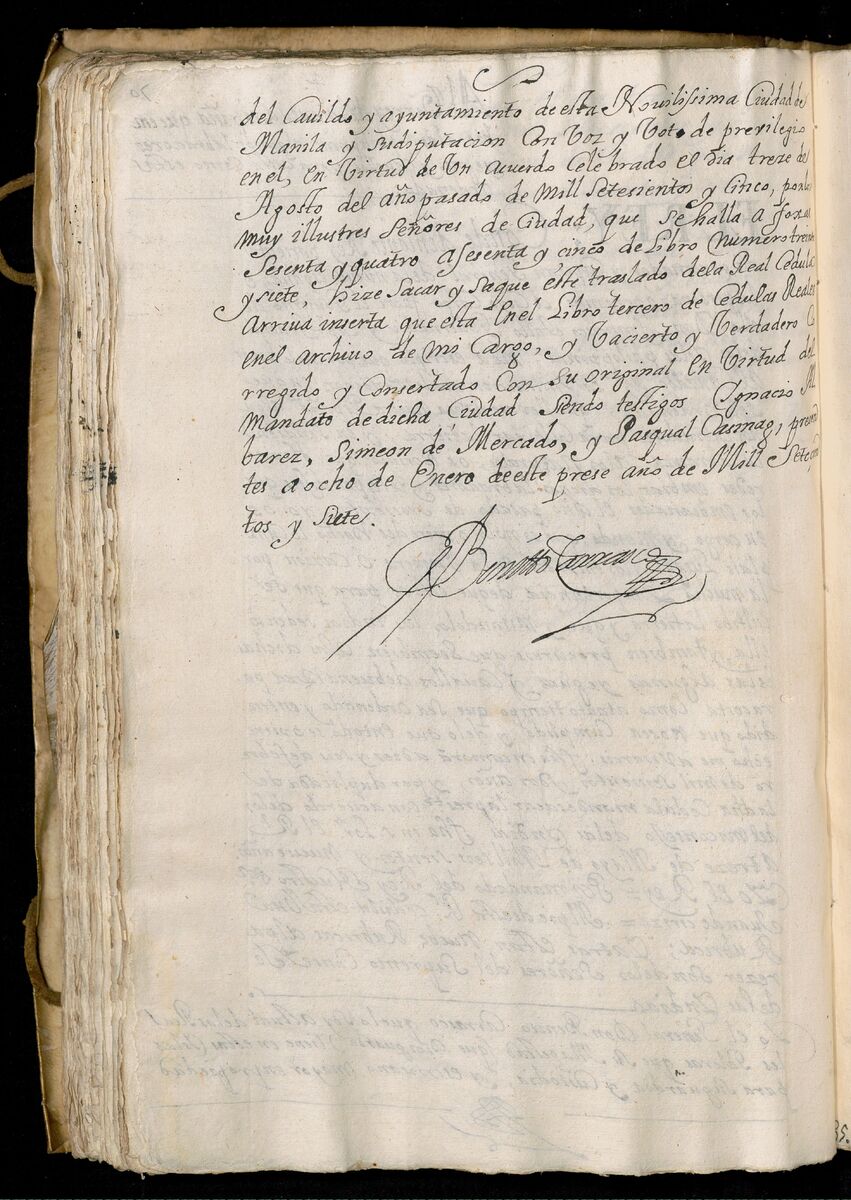 del Cavildo y ayuntamiento de esta Novilissima Ciudad de
Manila y sudiputacion Con Voz y Voto de previlegio
en el, en Virtud de Un acuerdo Celebrado el Dia treze de
Agosto del año pasado de Mill setesientos y Cinco, por los
muy illustres Señores de Ciudad, que se halla a foxas
Sesenta y quatro asesenta y cinco de Libro numero treinta
y siete, hize sacar y saque este traslado dela Real Cedula
arriva inserta que esta en el Libro tercero de Cedulas Reales
en el archivo de mi Cargo, y Vacierto y Verdadero Co
rregido y Consertado Con su original en Virtud del
mandato dedicha Ciudad siendo testigos Ygnacio
barez, Simeon de Mercado, y Pasqual Casinag,
tes a ocho de Enero de este prese año de Mill Setecien
tos y siete.
Benitto Carrasco